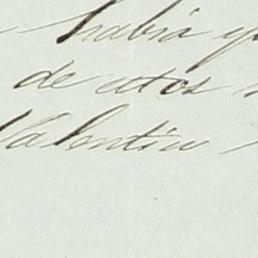 habia
de estos
Valentin